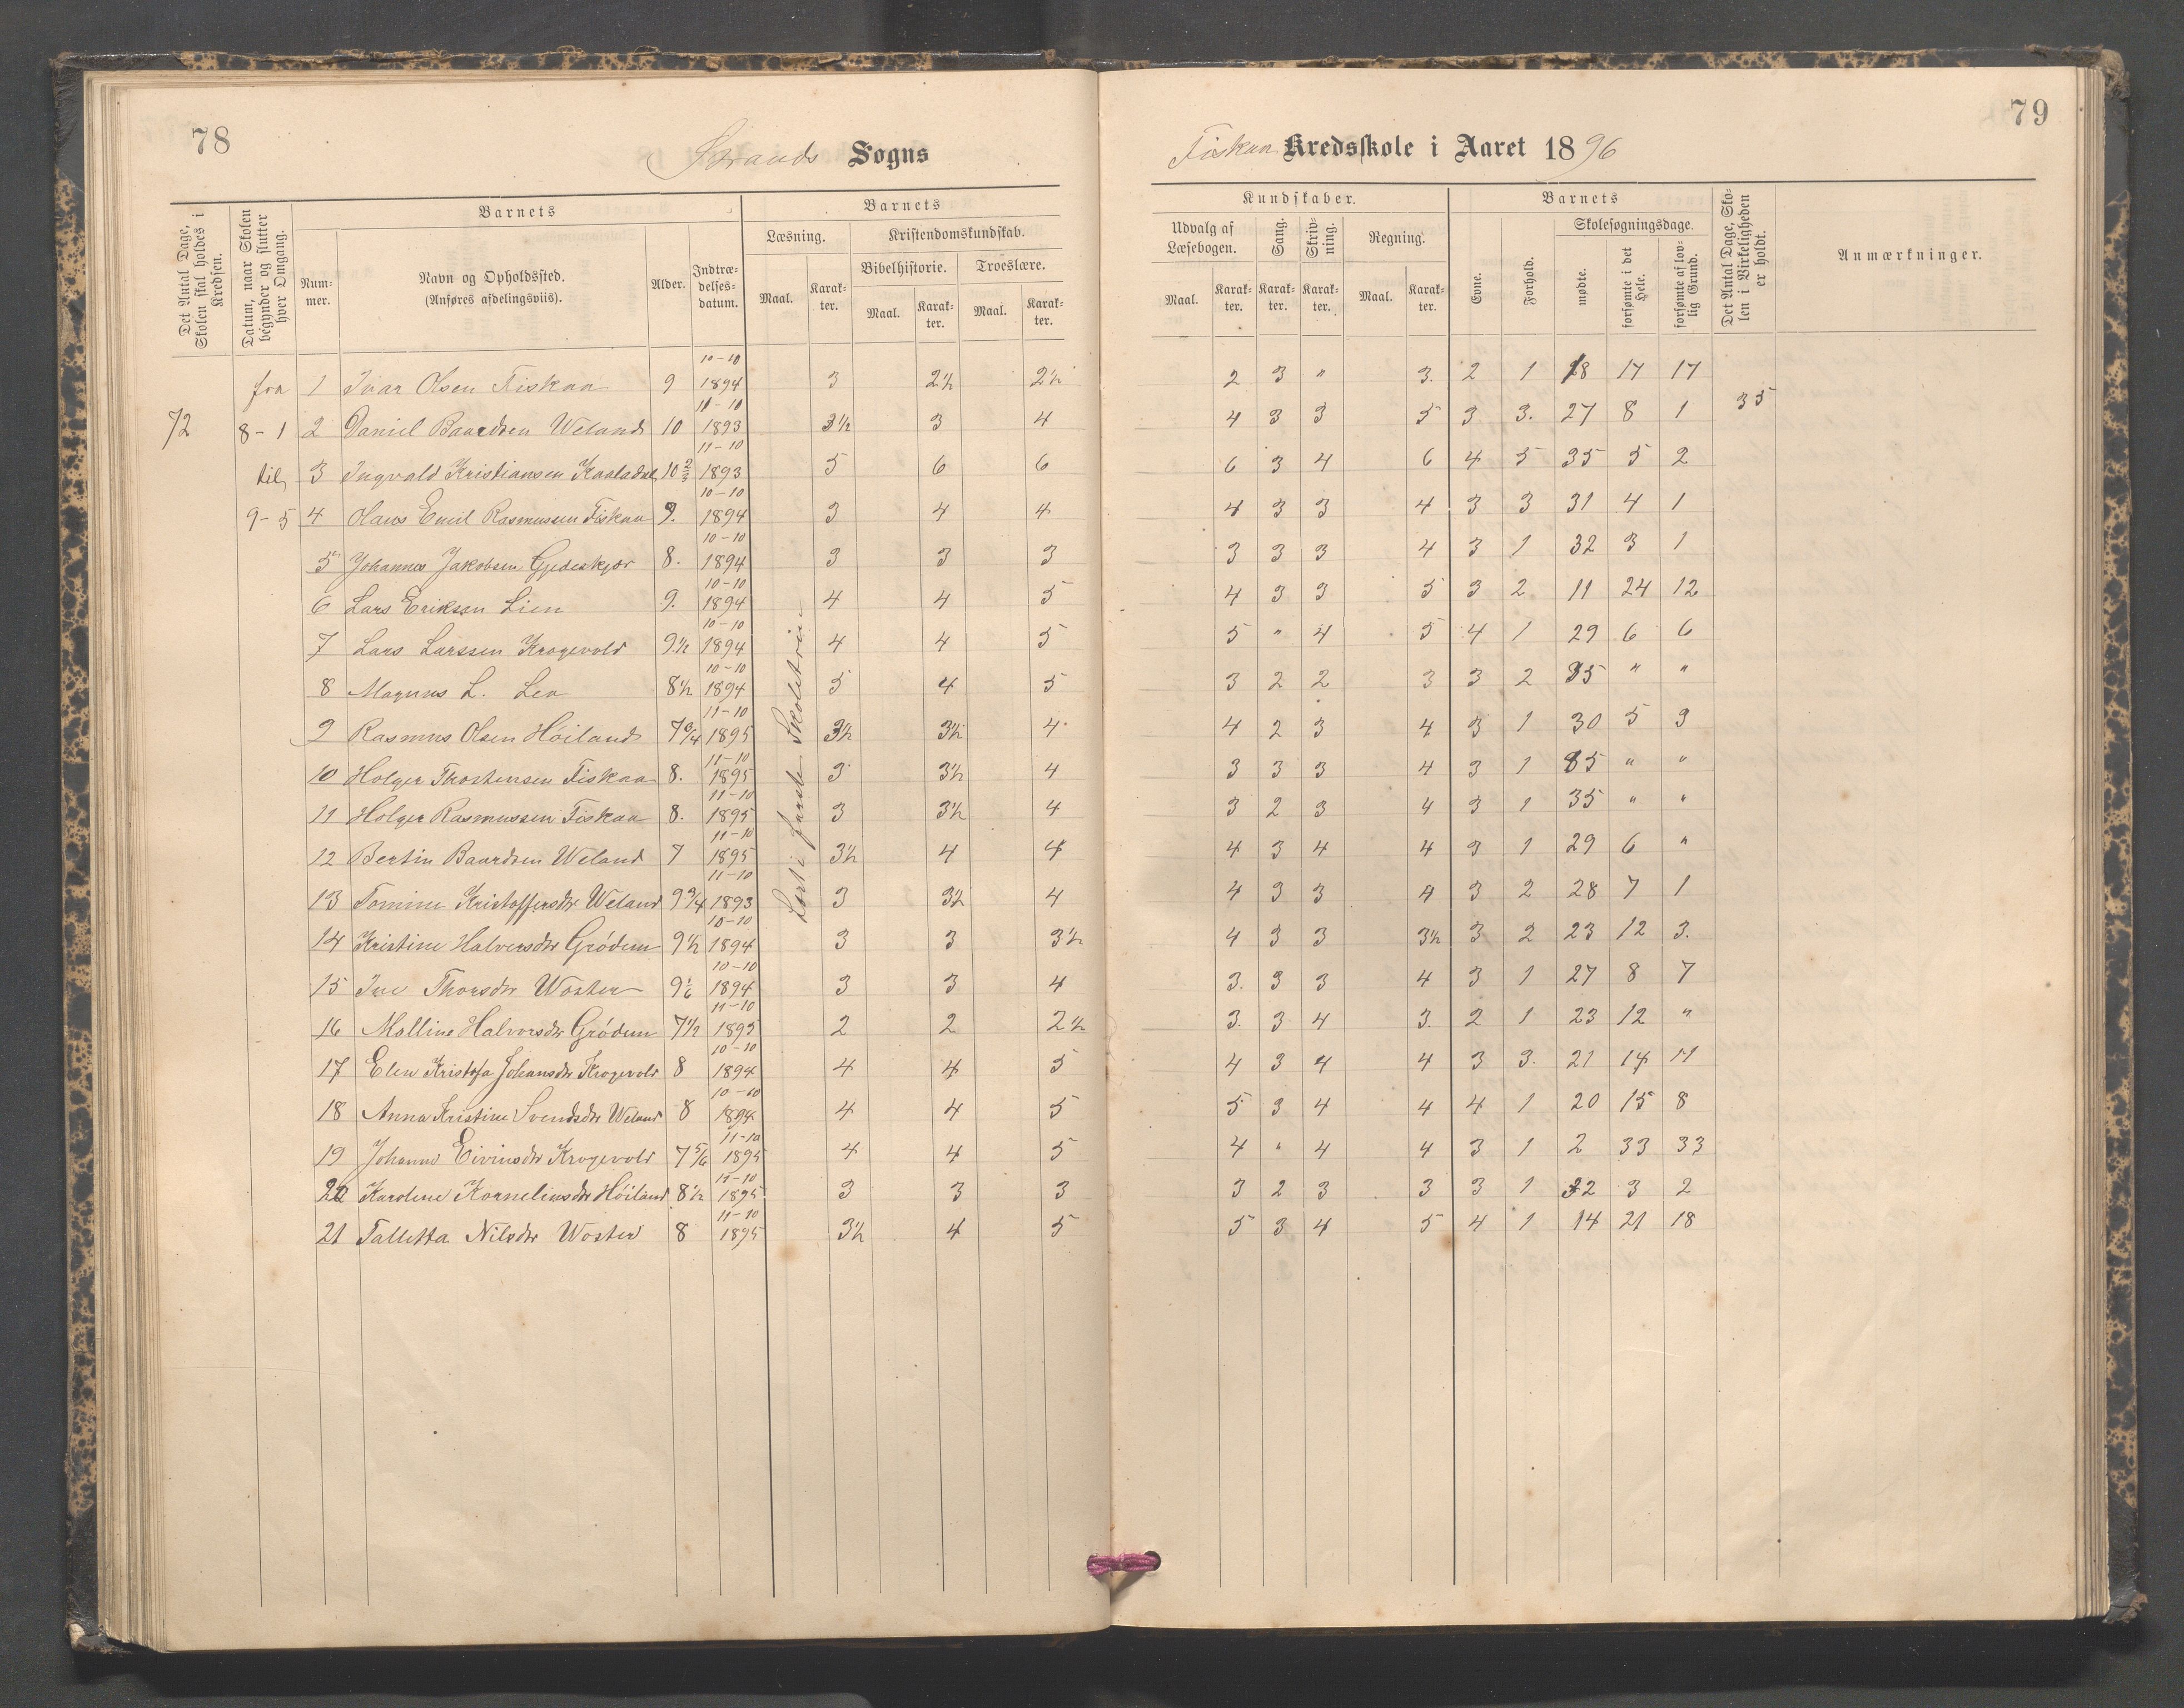 78
Strands Sogns
Det Antal Dage, Skolen skal holdes i Kredsen.
Datum, naar Skolen begynder og slutter hver Omgang.
Barnets
Num-mer.
Navn og Opholdssted.
(Anføres afdelingsviis).
Alder.
Indtræ-delses-datum.
Barnets
Læsning.
Kristendomskundskab.
Maal.
Karak-ter.
Bibelhistorie.
Troeslære.
Maal.
Karak-ter.
Maal.
Karak-ter.
72
fra
8-1
til
9-5
1 Ivar Olsen Fiskaa 9 10-10 1894 3 2½ 2½
2 Daniel Baardsen Weland 10 11-10 1893 3½ 3 4
3 Ingvald Kristiansen 10 11-10 1893 5 6 6
4 Olaus Emil Rasmussen Fiskaa 9. 10-10 1894 3 4 4
5 Johannes Jakobsen Gjedeskjær 8. 10-10 1894 3 3 3
6 Lars Eriksen Lien 9. 10-10 1894 4 4 5
7 Lars Larssen Krogevold 9½ 10-10 1894 4 4 5
8 Magnus L. Lea 8½ 10-10 1894 5 4 5
9 Rasmus Olsen Höiland 7¾ 11-10 1895 3½ 3½ 4
10 Holger Thorstensen Fiskaa 8. 11-10 1895 3 3½ 4
11 Holger Rasmussen Fiskaa 8. 11-10 1895 3 3½ 4
12 Bertin Baardsen Weland 7 11-10 1895 3½ 4 4
13 Tomine Kristoffersdtr Weland 9¾ 11-10 1893 3 3½ 4
14 Kristine Halvorsdtr Grödem 9½ 10-10 1894 3 3 3½
15 Ine Thorsdtr Woster 9⅙ 10-10 1894 3 3 4
16 Molline Halvorsdtr Grödem 7½ 11-10 1895 2 2 2½
17 Elen Kristofa Johansdtr Krogevold 8 10-10 1894 4 4 5
18 Anna Kristine Svendsdtr Weland 8 10-10 1894 4 4 5
19 Johanne Eivinsdtr Krogevold 7⅚ 11-10 1895 4 4 5
20 Karoline Korneliusdtr Höiland 8½ 11-10 1895 3 3 3
21 Talletta Nilsdtr Woster 8 11-10 1895 3½ 4 5
79
Fiskaa Kredsskole i Aaret 1896
Kundskaber.
Udvalg af Læsebogen.
Sang.
Skriv-ning.
Regning.
Maal.
Karak-ter.
Karak-ter.
Karak-ter.
Maal.
Karak-ter.
Barnets
Evne.
Forhold.
Skolesøgningsdage.
mødte.
forsømte i det Hele.
forsømte af lov-lig Grund.
Det Antal Dage, Sko-len i Virkeligheden er holdt.
Anmærkninger.
2 3 " 3. 2 1 18 17 17
35
4 3 3 5 3 3. 27 8 1
6 3 4 6 4 5 35 5 2
4 3 3 4 3 3 31 4 1
3 3 3 4 3 1 32 3 1
4 3 3 5 3 2 11 24 12
5 " 4 5 4 1 29 6 6
3 2 2 3 3 2 35 " "
4 2 3 4 3 1 30 5 3
3 3 3 4 3 1 35 " "
3 2 3 4 3 1 35 " "
4 3 4 4 3 1 29 6 "
4 3 3 4 3 2 28 7 1
4 3 3 3½ 3 2 23 12 3.
3. 3 3 4 3 1 27 8 7
3. 3 4 3. 2 1 23 12 "
4 3 4 4 3 3. 21 14 11
5 3 4 4 4 1 20 15 8
4 " 4 4 3 1 2 33 33
3 2 3 3 3 1 32 3 2
5 3 4 5 4 1 14 21 18